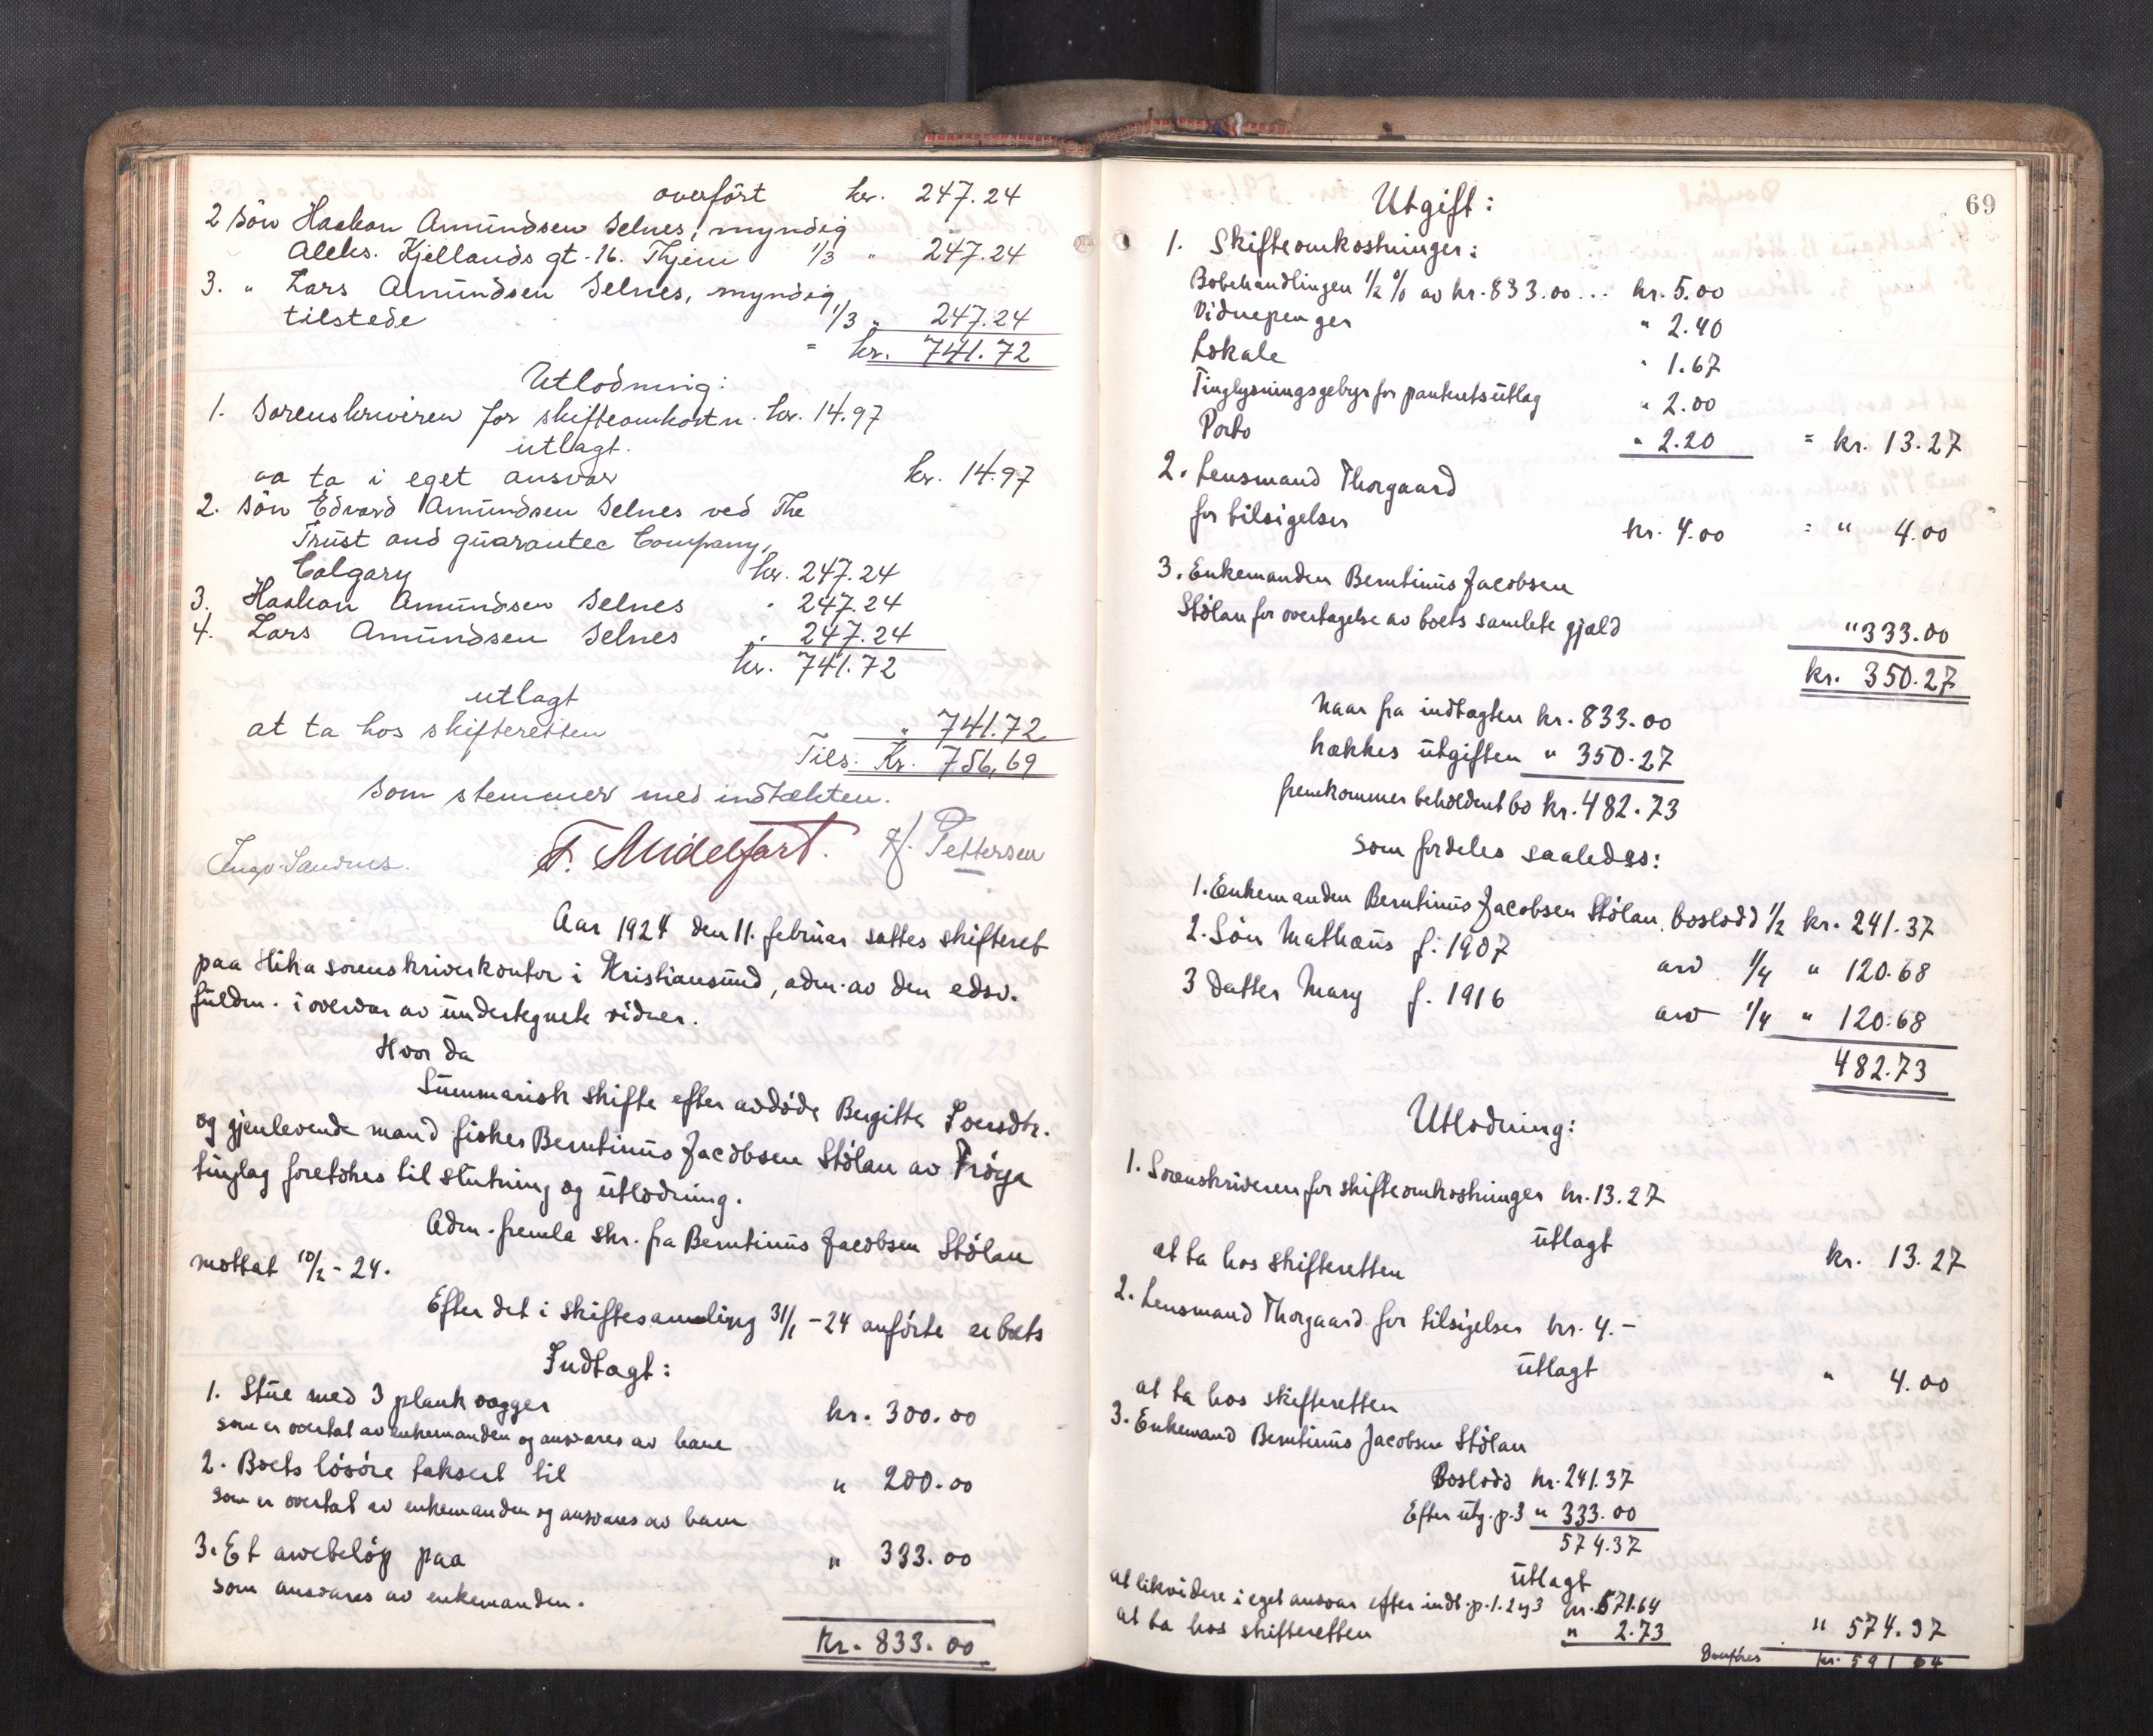 overført kr. 247.24
2 Søn Haakon Amundsen Selnes, myndig
Aleks. Kjellands gt. 16. Thjem 1/3 " 247.24
3. " Lars Amundsen Selnes, myndig,
tilstede 1/3 " 247.24
= kr. 741.72
Utlodning:
1. Sorenskriveren for skifteomkostn. kr. 14.97
utlagt.
aa ta i eget ansvar kr. 14.97
2. Søn Edvard Amundsen Selnes ved The
Trust and guarantee Company,
Calgary kr. 247.24
3. Haakon Amundsen Selnes " 247.24
4. Lars Amundsen Selnes " 247.24
kr. 741.72
utlagt
at ta hos skifteretten " 741.72
Tils: Kr. 756,69
som stemmer med indtækten.
Ingv. Sandnes. F. Midelfart. J. Pettersen
Aar 1924 den 11. februar sattes skifteret
paa Hitra sorenskriverkontor i Kristiansund, adm. av den edsv.
fuldm. i overvær av undertegnete vidner.
Hvor da
Summarisk skifte efter avdøde Bergitte
og gjenlevende mand fisker Berntinus Jacobsen Stølan av Frøya
tinglag foretokes til slutning og utlodning.
Adm. fremla skr. fra Berntinus Jacobsen Stølan
mottat 10/2 - 24.
Efter det i skiftesamling 31/1 - 24 anførte er boets
Indtægt:
1. Stue med 3 plank vægger kr. 300.00
som er overtat av enkemanden og ansvares av ham
2. Boets løsøre taksert til " 200.00
som er overtat av enkemanden og ansvares av ham
3. Et arvebeløp paa " 333.00
som ansvares av enkemanden.
Kr. 833.00
69
Utgift:
1. Skifteomkostninger:
Bobehandlingen 1/2 % av kr. 833.00... kr. 5.00
Vidnepenger " 2.40
Lokale " 1.67
Tinglysningsgebyr for panteretsutlag " 2.00
Porto " 2.20 = kr. 13.27
2. Lensmand Thorgaard
for tilsigelser kr. 4.00 = " 4.00
3. Enkemanden Berntinus Jacobsen
Stølan for overtagelse av boets samlete gjæld " 333.00
kr. 350.27
Naar fra indtægten kr. 833.00
trækkes utgiften " 350.27
fremkommer beholdent bo kr. 482.73
som fordeles saaledes:
1. Enkemanden Berntinus Jacobsen Stølan, boslodd 1/2 kr. 241.37
2. Søn Mathæus f. 1907 arv 1/4 " 120.68
3 Datter Mary f. 1916 arv 1/4 " 120.68
482.73
Utlodning:
1. Sorenskriveren for skifteomkostninger kr. 13.27
utlagt
at ta hos skifteretten kr. 13.27
2. Lensmand Thorgaard for tilsigelser kr. 4.-
utlagt
at ta hos skifteretten " 4.00
3. Enkemand Berntinus Jacobsen Stølan
Boslodd kr. 241.37
Efter utg. p. 3 " 333.00
574.37
utlagt
at likvidere i eget ansvar efter indt. p. 1. 2 og 3 kr. 571.64
at ta hos skifteretten " 2.73 " 574.37
Overføres kr. 591 64